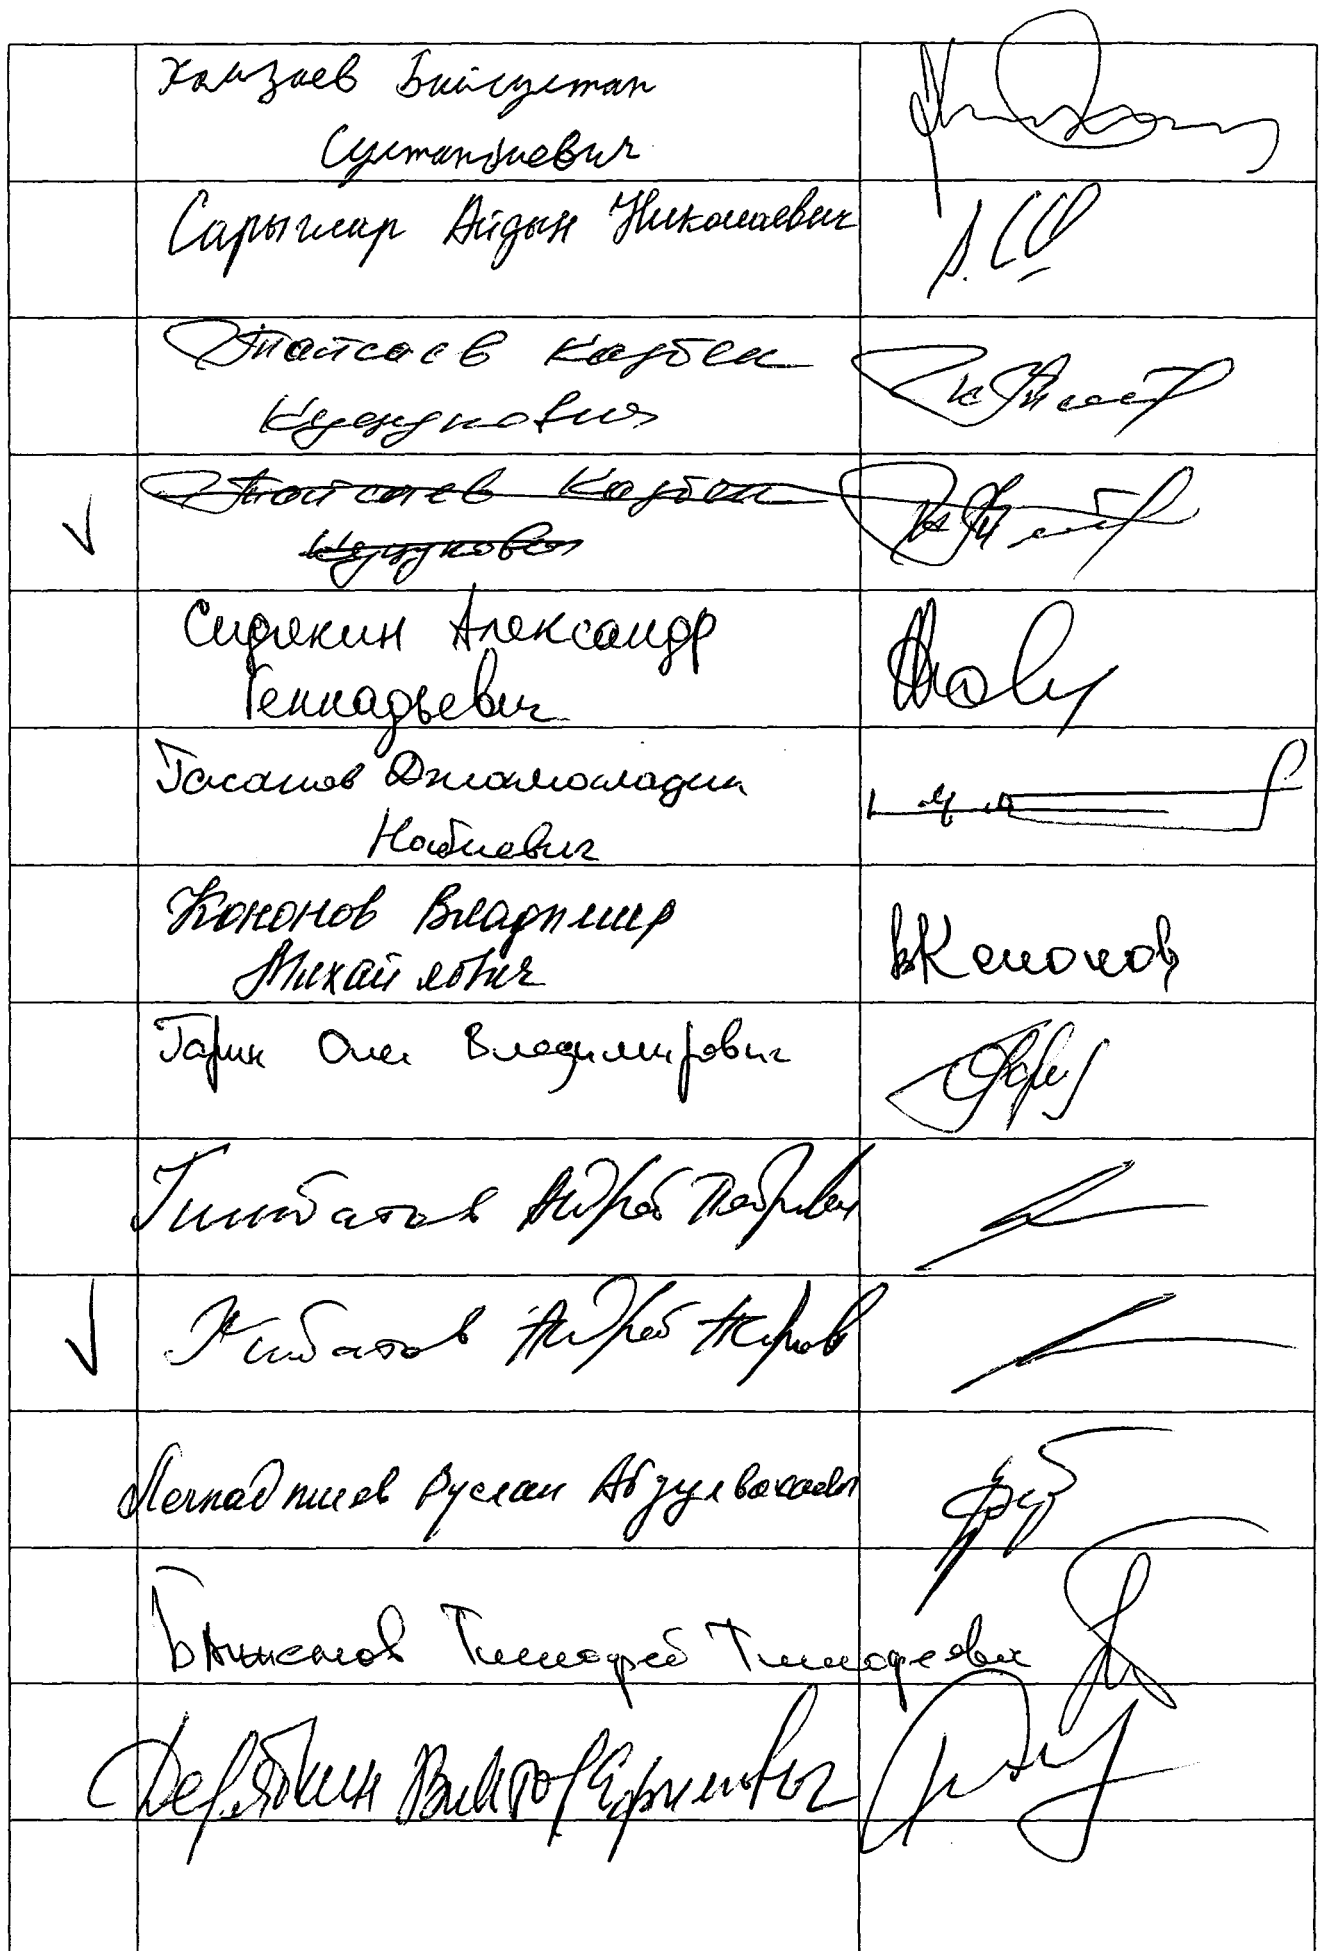 Хамзаев Бийсултан
Султанбиевич
Сарыглар Айдын Николаевич
Тайсаев Казбек
Куцукович
Тайсаев Казбек
Куцукович
Сидякин Александр
Геннадьевич
Гасанов Джамаладин
Набиевич
Кононов Владимир
Михайлович
вКононов
Гарин Олег Владимирович
Андрей Петрович
Андрей
Руслан Абдулвахаевич
Баженов Тимофей Тимофеевич
Дерябкин Виктор Ефимович